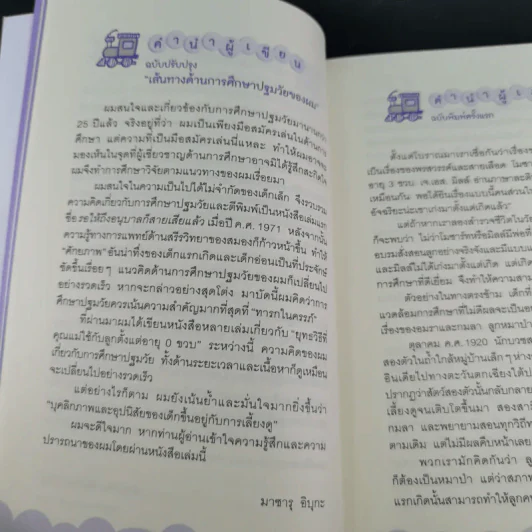 คำนำผู้เขียน
ฉบับปรับปรุง
"เส้นทางด้านการศึกษาปฐมวัยของผม"
ผมสนใจและเกี่ยวข้องกับการศึกษาปฐมวัยมานานกว่า
25 ปีแล้ว จริงอยู่ที่ว่า ผมเป็นเพียงมือสมัครเล่นในด้านการ
ศึกษา แต่ความที่เป็นมือสมัครเล่นนี่แหละ ทำให้ผมอาจจะ
มองเห็นในจุดที่ผู้เชี่ยวชาญด้านการศึกษาอาจมิได้รู้สึกสะกิดใจ
ผมจึงทำการศึกษาวิจัยตามแนวทางของผมเรื่อยมา
ผมสนใจในความเป็นไปได้ไม่จำกัดของเด็กเล็ก จึงรวบรวม
ความคิดเกี่ยวกับการศึกษาปฐมวัยและตีพิมพ์เป็นหนังสือเล่มแรก
ชื่อ รอให้ถึงอนุบาลก็สายเสียแล้ว เมื่อปี ค.ศ. 1971 หลังจากนั้น
ความรู้ทางการแพทย์ด้านสรีรวิทยาของสมองก็ก้าวหน้าขึ้น ทำให้
"ศักยภาพ" อันน่าทึ่งของเด็กแรกเกิดและเด็กอ่อนเป็นที่ประจักษ์
ชัดขึ้นเรื่อยๆ แนวคิดด้านการศึกษาปฐมวัยของผมก็เปลี่ยนไป
อย่างรวดเร็ว หากจะกล่าวอย่างสุดโต่ง มาบัดนี้ผมคิดว่าการ
ศึกษาปฐมวัยควรเน้นความสำคัญมากที่สุดที่ "ทารกในครรภ์"
ที่ผ่านมาผมได้เขียนหนังสือหลายเล่มเกี่ยวกับ "ยุทธวิธีที่
คุณแม่ใช้กับลูกตั้งแต่อายุ 0 ขวบ" ระหว่างนี้ ความคิดของผม
เกี่ยวกับการศึกษาปฐมวัย ทั้งด้านระยะเวลาและเนื้อหาก็ดูเหมือน
จะเปลี่ยนไปอย่างรวดเร็ว
แต่อย่างไรก็ตาม ผมยังเน้นย้ำและมั่นใจมากยิ่งขึ้นว่า
"บุคลิกภาพและอุปนิสัยของเด็กขึ้นอยู่กับการเลี้ยงดู"
ผมจะดีใจมาก หากท่านผู้อ่านเข้าใจความรู้สึกและความ
ปรารถนาของผมโดยผ่านหนังสือเล่มนี้
มาซารุ อิบุกะ
คำนำผู้เ
ฉบับพิมพ์ครั้งแรก
ตั้งแต่โบราณมาเราเชื่อกันว่าเรื่องข
เป็นเรื่องของพรสวรรค์และสายเลือด โมซา
อายุ 3 ขวบ เจ.เอส. มิลล์ อ่านภาษาละติ
เหมือนกัน พอได้ยินเรื่องแบบนี้คนส่วนให
อัจฉริยะน่ะเขาเก่งมาตั้งแต่เกิดแล้ว"
แต่ถ้าหากเราลองสำรวจชีวิตในวัย
ก็จะพบว่า ไม่ว่าโมซาร์ทหรือมิลล์มีพ่อที่
อบรมสั่งสอนลูกอย่างจริงจังและมีแบบแ
และมิลล์ไม่ได้เก่งมาตั้งแต่เกิด แต่เกิด
การศึกษาที่ดีเยี่ยม จึงทำให้ความสาม
ตัวอย่างในทางตรงข้าม เด็กที่
แวดล้อมการศึกษาที่ไม่ดีผลจะเป็นอย
เรื่องของอมราและกมลา ลูกหมาป่า
ตุลาคม ค.ศ. 1920 นักบวชส
สองตัวในถ้ำใกล้หมู่บ้านเล็ก ๆ ห่าง
อินเดียไปทางตะวันตกเฉียงใต้
ปรากฏว่าสัตว์สองตัวนั้นกลับกลาย
เลี้ยงดูจนเติบโตขึ้นมา สองสา
กมลา และพยายามสอนทุกวิถี
ตามเดิม แต่ไม่มีผลคืบหน้าเลย
พวกเรามักคิดกันว่า ลู
ก็ต้องเป็นหมาป่า แต่ว่าสภาพ
แรกเกิดนั้นสามารถทำให้ลูกค